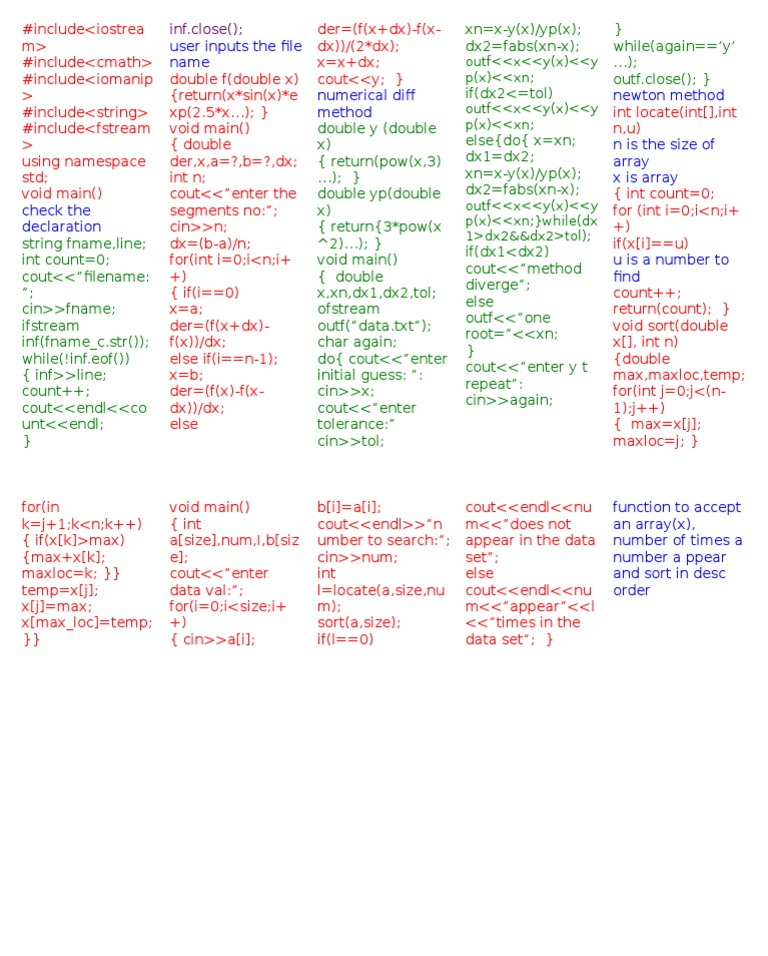 #include<iostrea
m>
#include<cmath>
#include<iomanip
>
#include<string>
#include<fstream
>
using namespace
std;
void main()
check the
declaration
string fname,line;
int count=0;
cout<<”filename:
”;
cin>>fname;
ifstream
inf(fname_c.str());
while(!inf.eof())
{ inf>>line;
count++;
cout<<endl<<co
unt<<endl;
}
inf.close();
user inputs the file
name
double f(double x)
{return(x*sin(x)*e
xp(2.5*x…); }
void main()
{ double
der,x,a=?,b=?,dx;
int n;
cout<<”enter the
segments no:”;
cin>>n;
dx=(b-a)/n;
for(int i=0;i<n;i+
+)
{ if(i==0)
x=a;
der=(f(x+dx)-
f(x))/dx;
else if(i==n-1);
x=b;
der=(f(x)-f(x-
dx))/dx;
else
der=(f(x+dx)-f(x-
dx))/(2*dx);
x=x+dx;
cout<<y; }
numerical diff
method
double y (double
x)
{ return(pow(x,3)
…); }
double yp(double
x)
{ return{3*pow(x
^2)…); }
void main()
{ double
x,xn,dx1,dx2,tol;
ofstream
outf(“data.txt”);
char again;
do{ cout<<”enter
initial guess: “:
cin>>x;
cout<<”enter
tolerance:”
cin>>tol;
xn=x-y(x)/yp(x);
dx2=fabs(xn-x);
outf<<x<<y(x)<<y
p(x)<<xn;
if(dx2<=tol)
outf<<x<<y(x)<<y
p(x)<<xn;
else{do{ x=xn;
dx1=dx2;
xn=x-y(x)/yp(x);
dx2=fabs(xn-x);
outf<<x<<y(x)<<y
p(x)<<xn;}while(dx
1>dx2&&dx2>tol);
if(dx1<dx2)
cout<<”method
diverge”;
else
outf<<”one
root=”<<xn;
}
cout<<”enter y t
repeat”:
cin>>again;
}
while(again==’y’
…);
outf.close(); }
newton method
int locate(int[],int
n,u)
n is the size of
array
x is array
{ int count=0;
for (int i=0;i<n;i+
+)
if(x[i]==u)
u is a number to
find
count++;
return(count); }
void sort(double
x[], int n)
{double
max,maxloc,temp;
for(int j=0;j<(n-
1);j++)
{ max=x[j];
maxloc=j; }
for(in
k=j+1;k<n;k++)
{ if(x[k]>max)
{max+x[k];
maxloc=k; }}
temp=x[j];
x[j]=max;
x[max_loc]=temp;
}}
void main()
{ int
a[size],num,l,b[siz
e];
cout<<”enter
data val:”;
for(i=0;i<size;i+
+)
{ cin>>a[i];
b[i]=a[i];
cout<<endl>>”n
umber to search:”;
cin>>num;
int
l=locate(a,size,nu
m);
sort(a,size);
if(l==0)
cout<<endl<<nu
m<<”does not
appear in the data
set”;
else
cout<<endl<<nu
m<<”appear”<<l
<<”times in the
data set”; }
function to accept
an array(x),
number of times a
number a ppear
and sort in desc
order